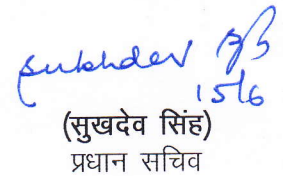 Sukhdev
15/6
(सुखदेव सिंह)
प्रधान सचिव